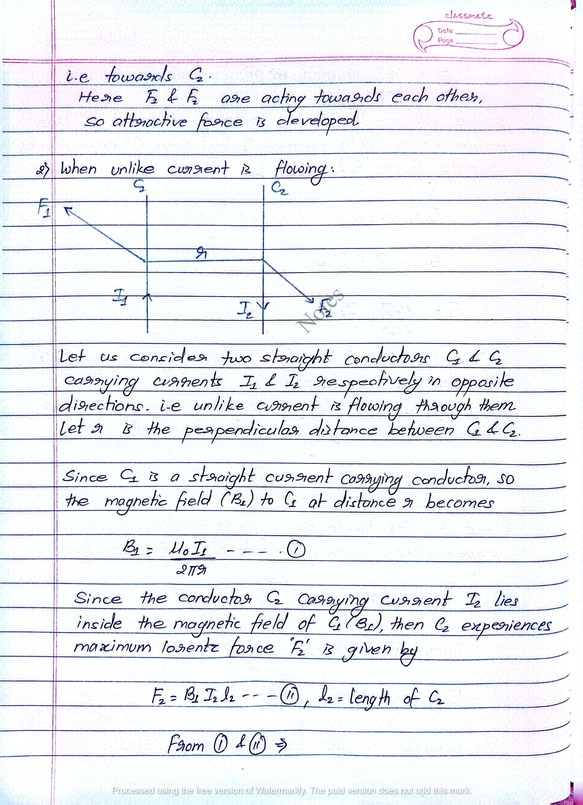 classmate
Date
Page
i.e towards C₂.
Here F₂ & F₂ are acting towards each other,
so attractive force is developed.
2) When unlike current is flowing:
C₁ C₂
F₁
r
I₁ I₂ F₂
Notes
Let us consider two straight conductors C₁ & C₂
carrying currents I₁ & I₂ respectively in opposite
directions. i.e unlike current is flowing through them
Let r is the perpendicular distance between C₁ & C₂.
Since C₁ is a straight current carrying conductor, so
the magnetic field (B₁) to C₁ at distance r becomes
B₁ = μ₀I₁ / 2πr ---- (i)
Since the conductor C₂ carrying current I₂ lies
inside the magnetic field of C₁ (B₁), then C₂ experiences
maximum lorentz force 'F₂' is given by
F₂ = B₁ I₂ l₂ --- (ii), l₂ = length of C₂
From (i) & (ii) ⇒
Processed using the free version of Watermarkly. The paid version does not add this mark.